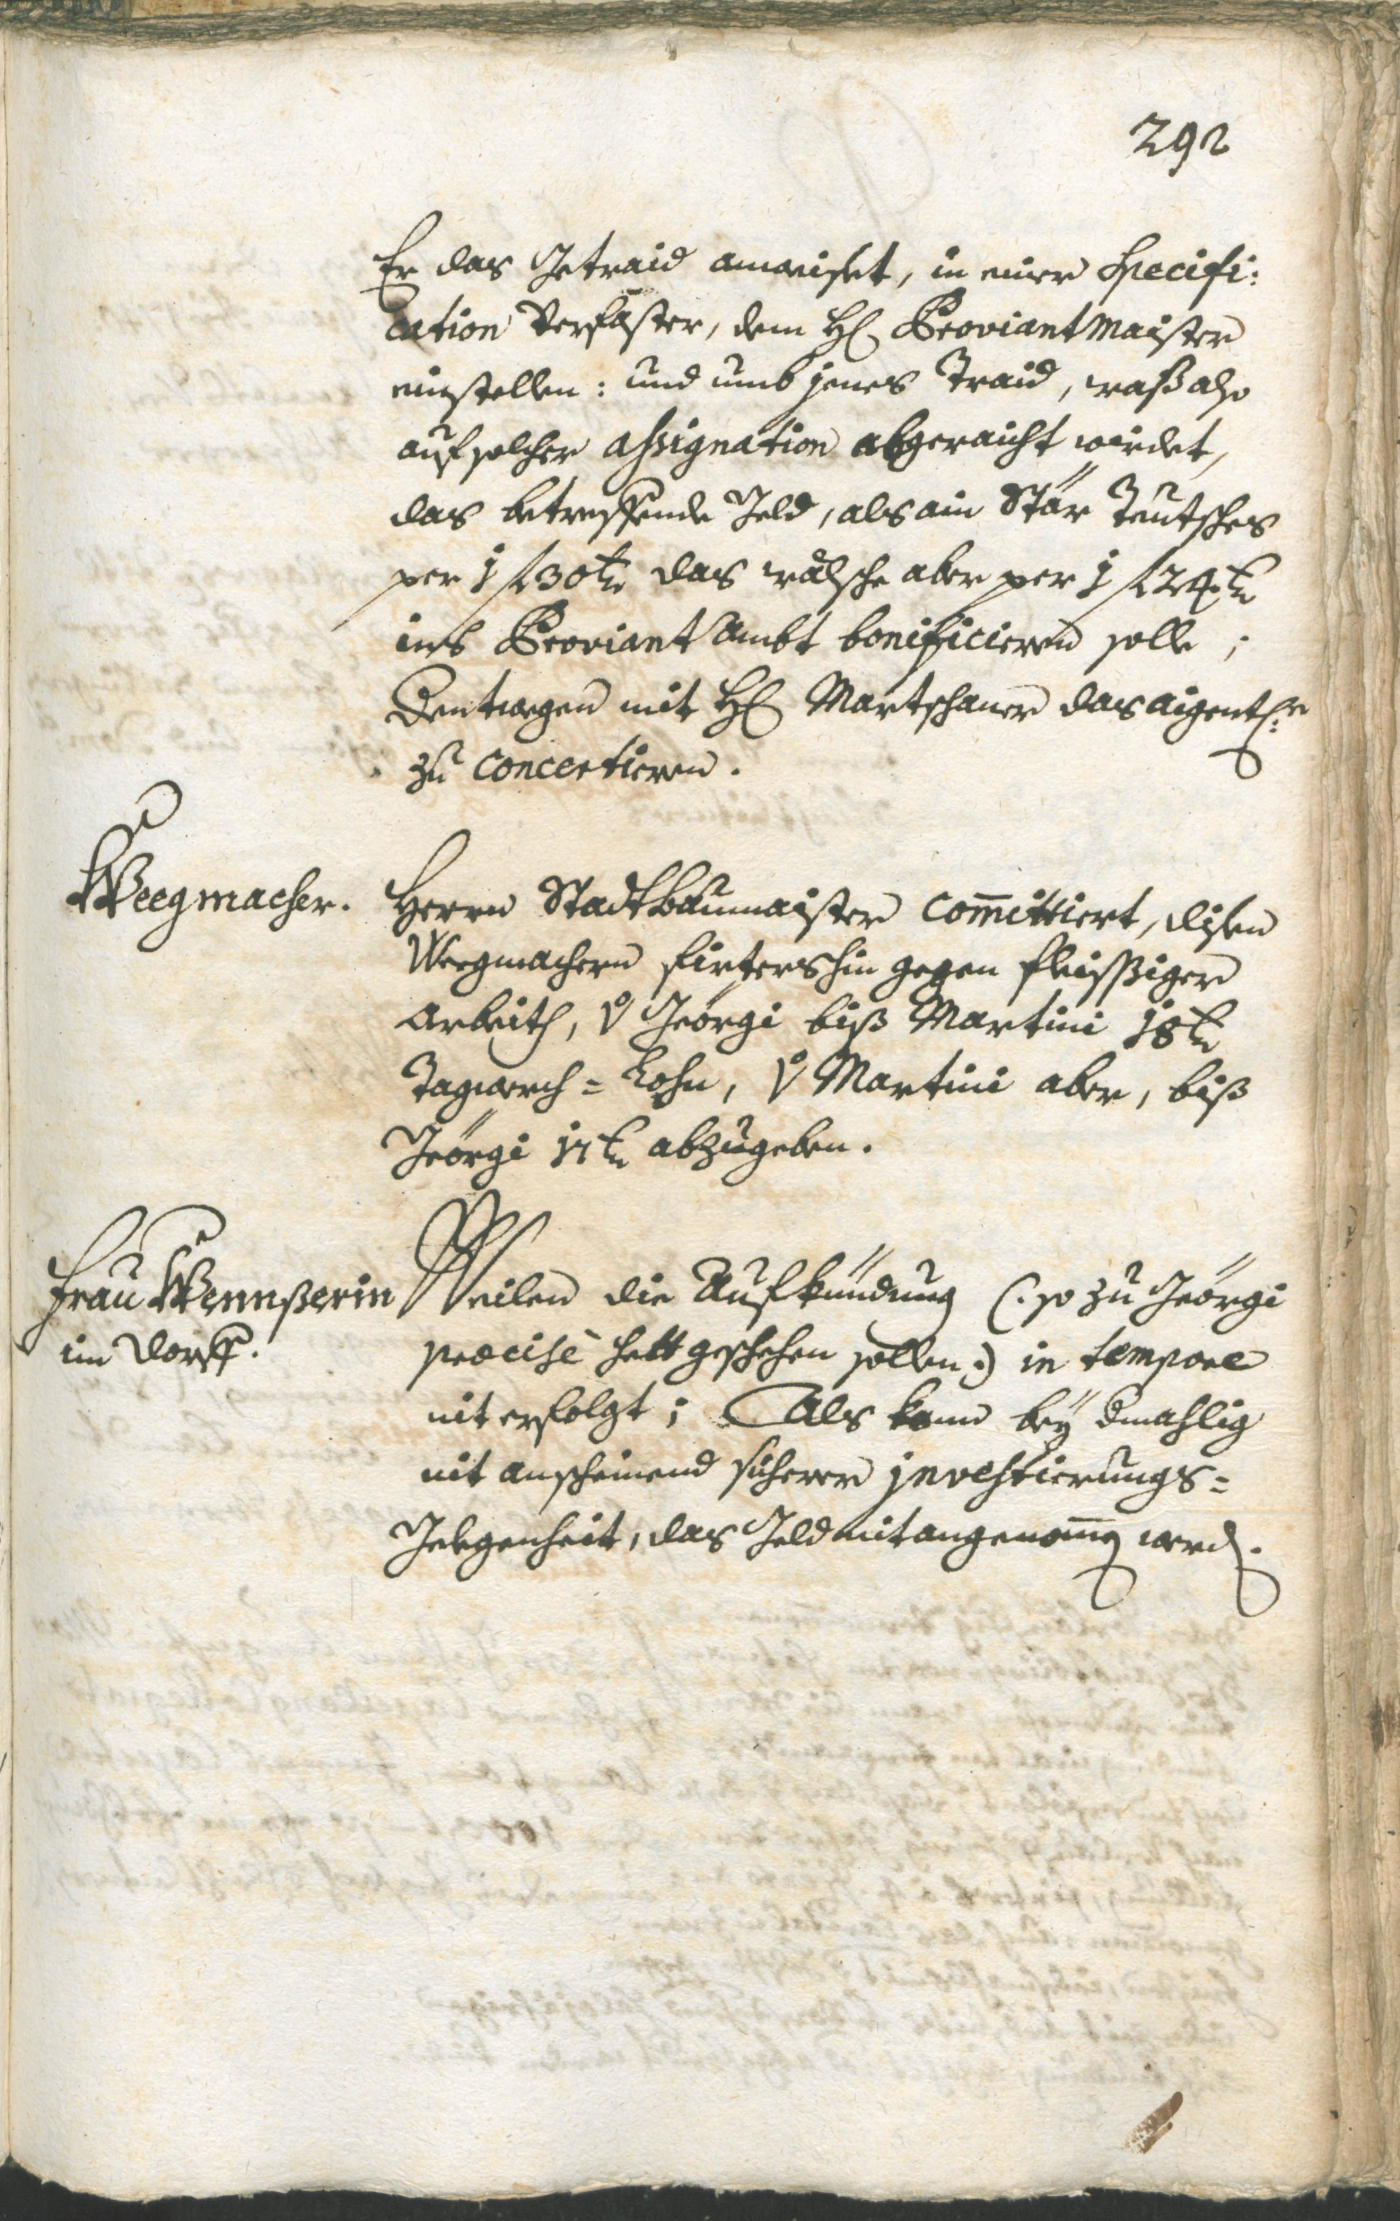 292
Er das Getraid anweiset, in einer Specifi:
cation verfaster, dem H: Proviantmaister
einstellen: und umb jenes Traid, waß also
auf solcher assignation abgeraicht wirdet,
das betreffende Geld, als ain Stär Teutsches
per 1 f 30 kr das wälsche aber per 1 f 24 kr
ins Proviant Ambt bonificieren solle;
Dentwegen mit H: Martschaner das aigentl:e
zu concertieren.
Weegmacher.
Herrn Stadtbaumaister committiert, disen
Weegmachern firtershin gegen fleissßiger
Arbeith, v Geörgi biß Martini 18 kr
Tagwerch = Lohn, v Martini aber, biß
Geörgi 17 kr abzugeben.
Frau Wennßerin
im Dorff.
Weilen die Aufkündung (: so zu Geörgi
præcisè hett geschehen sollen :) in tempore
nit erfolgt; Als kann beÿ dmahlig
nit anscheinend sicherer investierungs=
Gelegenheit, das Geld nit angenom̅en werd.